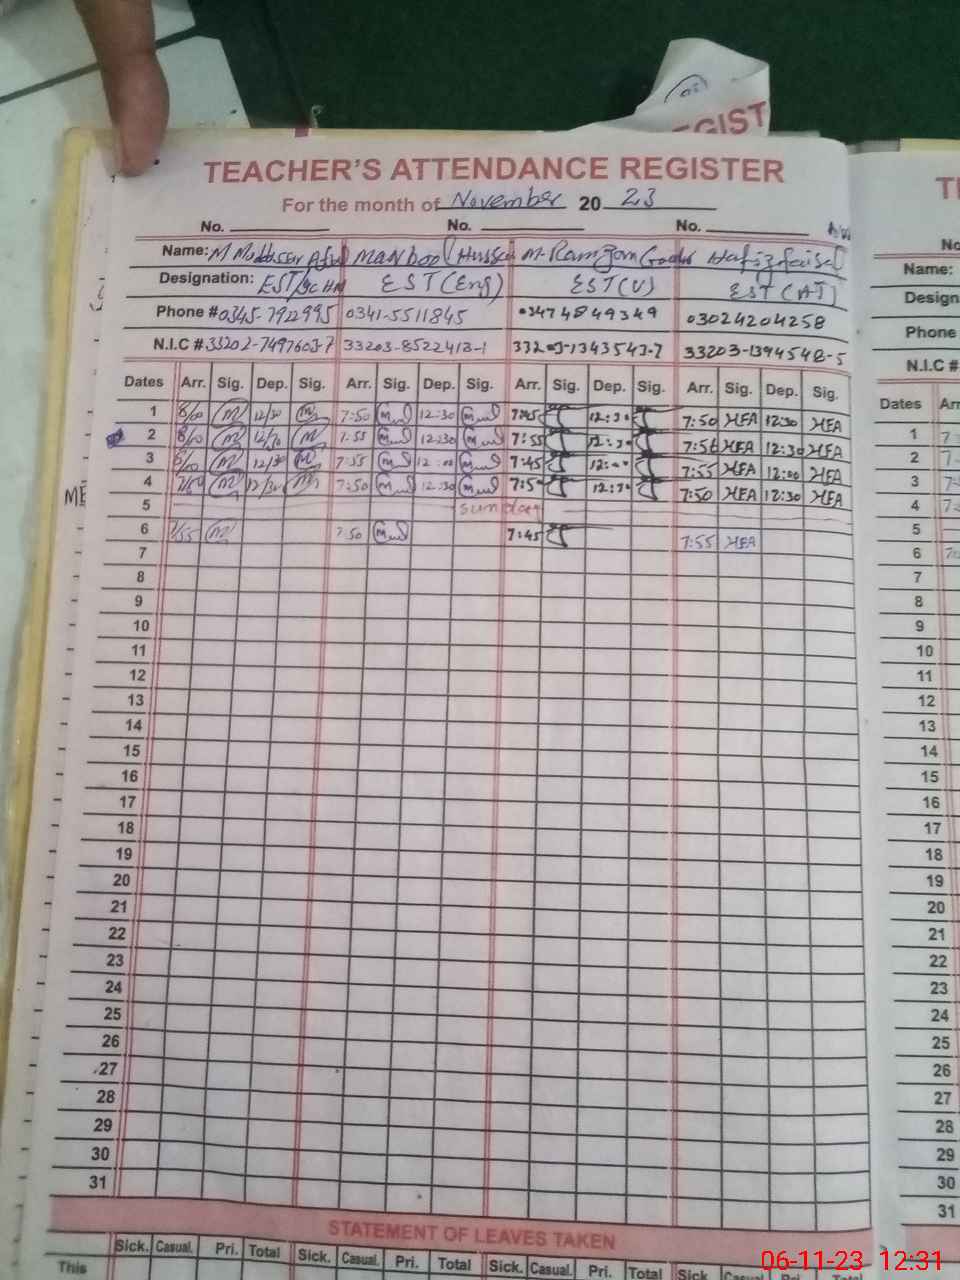 GIST
TEACHER'S ATTENDANCE REGISTER
For the month of November 20 23
No. No. No.
Name: M Hussain M. Ramzan Hafiz faisal
Designation: EST EST(Eng) EST(U) EST(AT)
Phone # 0345-7922995 0341-5511845 03474849349 03024204258
N.I.C # 33202-7497603-7 33203-8522413-1 33203-1343543-7 33203-1394548-5
Dates Arr. Sig. Dep. Sig. Arr. Sig. Dep. Sig. Arr. Sig. Dep. Sig. Arr. Sig. Dep. Sig.
1 8/00 M 12/30 M 7:50 12:30 7:45 12:30 7:50 HFA 12:30 HFA
2 8/00 M 12/30 M 7:55 12:30 7:55 12:30 7:56 HFA 12:30 HFA
3 8/00 M 12/30 M 7:55 12:00 7:45 12:00 7:55 HFA 12:00 HFA
4 7/50 M 12/30 M 7:50 12:30 7:50 12:30 7:50 HFA 12:30 HFA
5 sunday
6 7/55 M 7:50 7:45 7:55 HFA
7
8
9
10
11
12
13
14
15
16
17
18
19
20
21
22
23
24
25
26
27
28
29
30
31
STATEMENT OF LEAVES TAKEN
Sick. Casual. Pri. Total Sick. Casual. Pri. Total Sick. Casual. Pri. Total Sick Casual. Pri. Total
This
Name:
Design
Phone
N.I.C #
Dates Arr
1
2
3
4
5
6
7
8
9
10
11
12
13
14
15
16
17
18
19
20
21
22
23
24
25
26
27
28
29
30
31
06-11-23 12:31